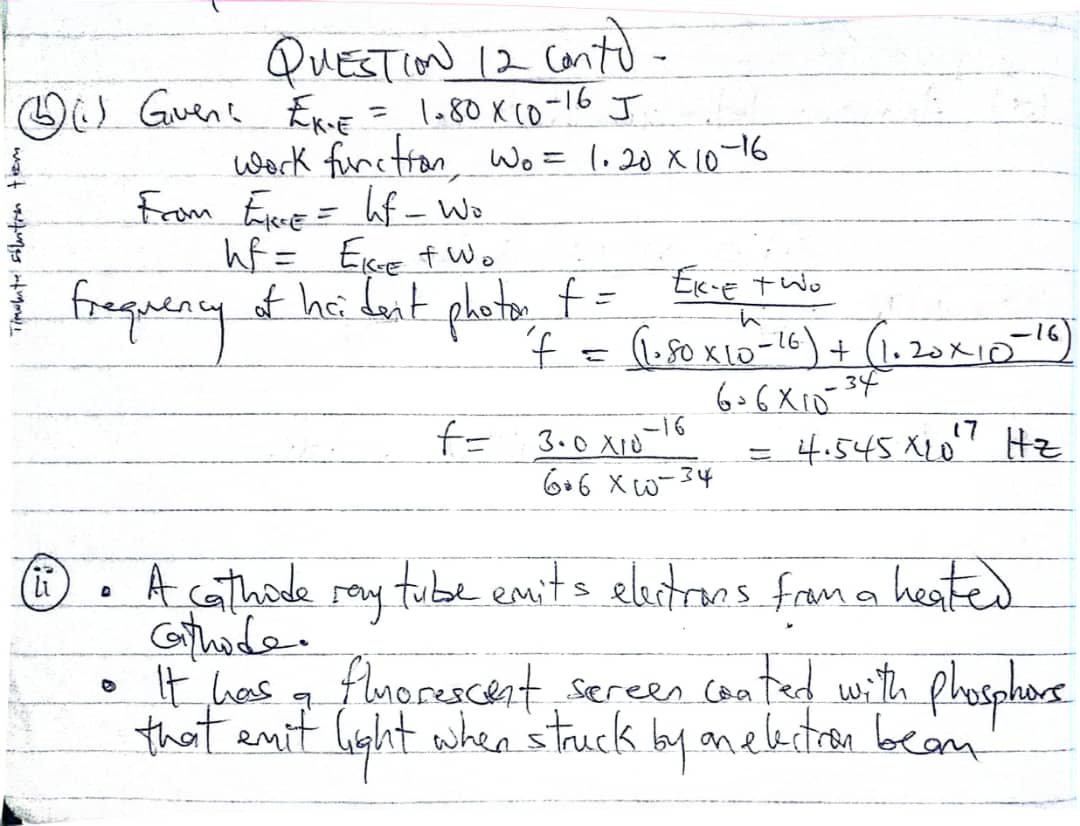 QUESTION 12 Contd -
(b)(i) Given: E_K.E = 1.80 X 10^-16 J
Work function, Wo = 1.20 X 10^-16
From E_K.E = hf - Wo
hf = E_K.E + Wo
frequency of Incident photon, f = (E_K.E + Wo)/h
f = ((1.80 X 10^-16) + (1.20 X 10^-16))/(6.6 X 10^-34)
f = (3.0 X 10^-16)/(6.6 X 10^-34) = 4.545 X 10^17 Hz
(ii) • A cathode ray tube emits electrons from a heated
cathode.
• It has a fluorescent screen coated with phosphors
that emit light when struck by an electron beam
solution team